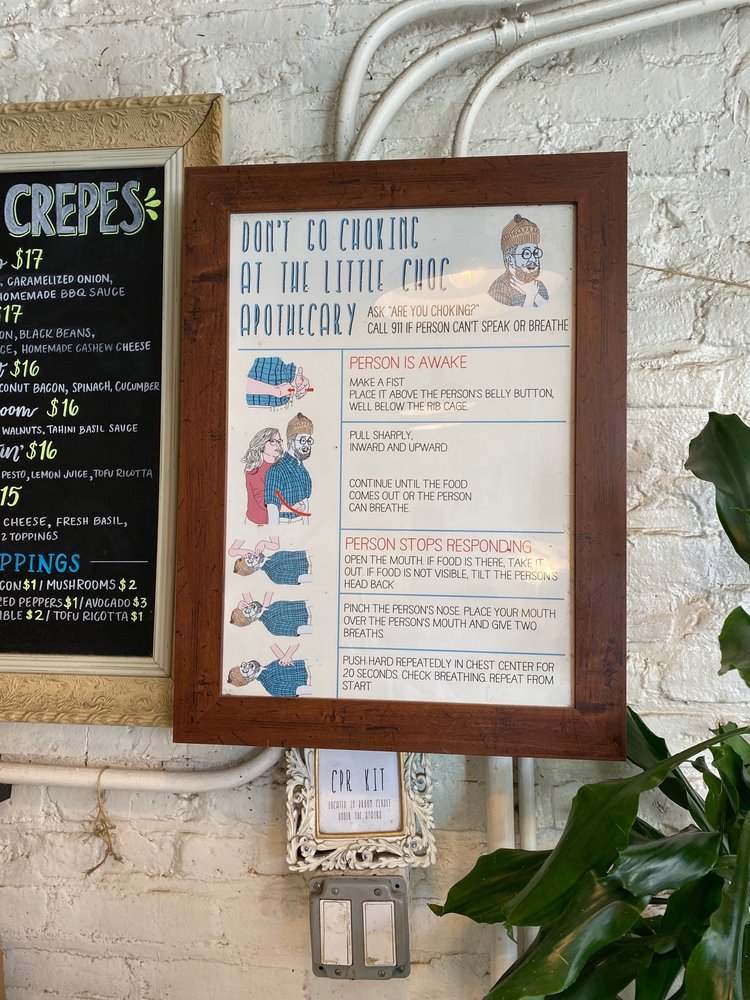 CREPES
$17
, CARAMELIZED ONION,
HOMEMADE BBQ SAUCE
$17
BLACK BEANS,
HOMEMADE CASHEW CHEESE
$16
BACON, SPINACH, CUCUMBER
$16
WALNUTS, TAHINI BASIL SAUCE
$16
PESTO, LEMON JUICE, TOFU RICOTTA
15
CHEESE, FRESH BASIL,
2 TOPPINGS
PPINGS
$1/ MUSHROOMS $2
PEPPERS $1/ AVOCADO $3
$2 / TOFU RICOTTA $1
DON'T GO CHOKING
AT THE LITTLE CHOC
APOTHECARY
ASK "ARE YOU CHOKING?"
CALL 911 IF PERSON CAN'T SPEAK OR BREATHE
PERSON IS AWAKE
MAKE A FIST
PLACE IT ABOVE THE PERSON'S BELLY BUTTON,
WELL BELOW THE RIB CAGE.
PULL SHARPLY,
INWARD AND UPWARD.
CONTINUE UNTIL THE FOOD
COMES OUT OR THE PERSON
CAN BREATHE.
PERSON STOPS RESPONDING
OPEN THE MOUTH. IF FOOD IS THERE, TAKE IT
OUT. IF FOOD IS NOT VISIBLE, TILT THE PERSON'S
HEAD BACK
PINCH THE PERSON'S NOSE. PLACE YOUR MOUTH
OVER THE PERSON'S MOUTH AND GIVE TWO
BREATHS.
PUSH HARD REPEATEDLY IN CHEST CENTER FOR
20 SECONDS. CHECK BREATHING. REPEAT FROM
START
CPR KIT
LOCATED IN BROOM CLOSET
UNDER THE STAIRS